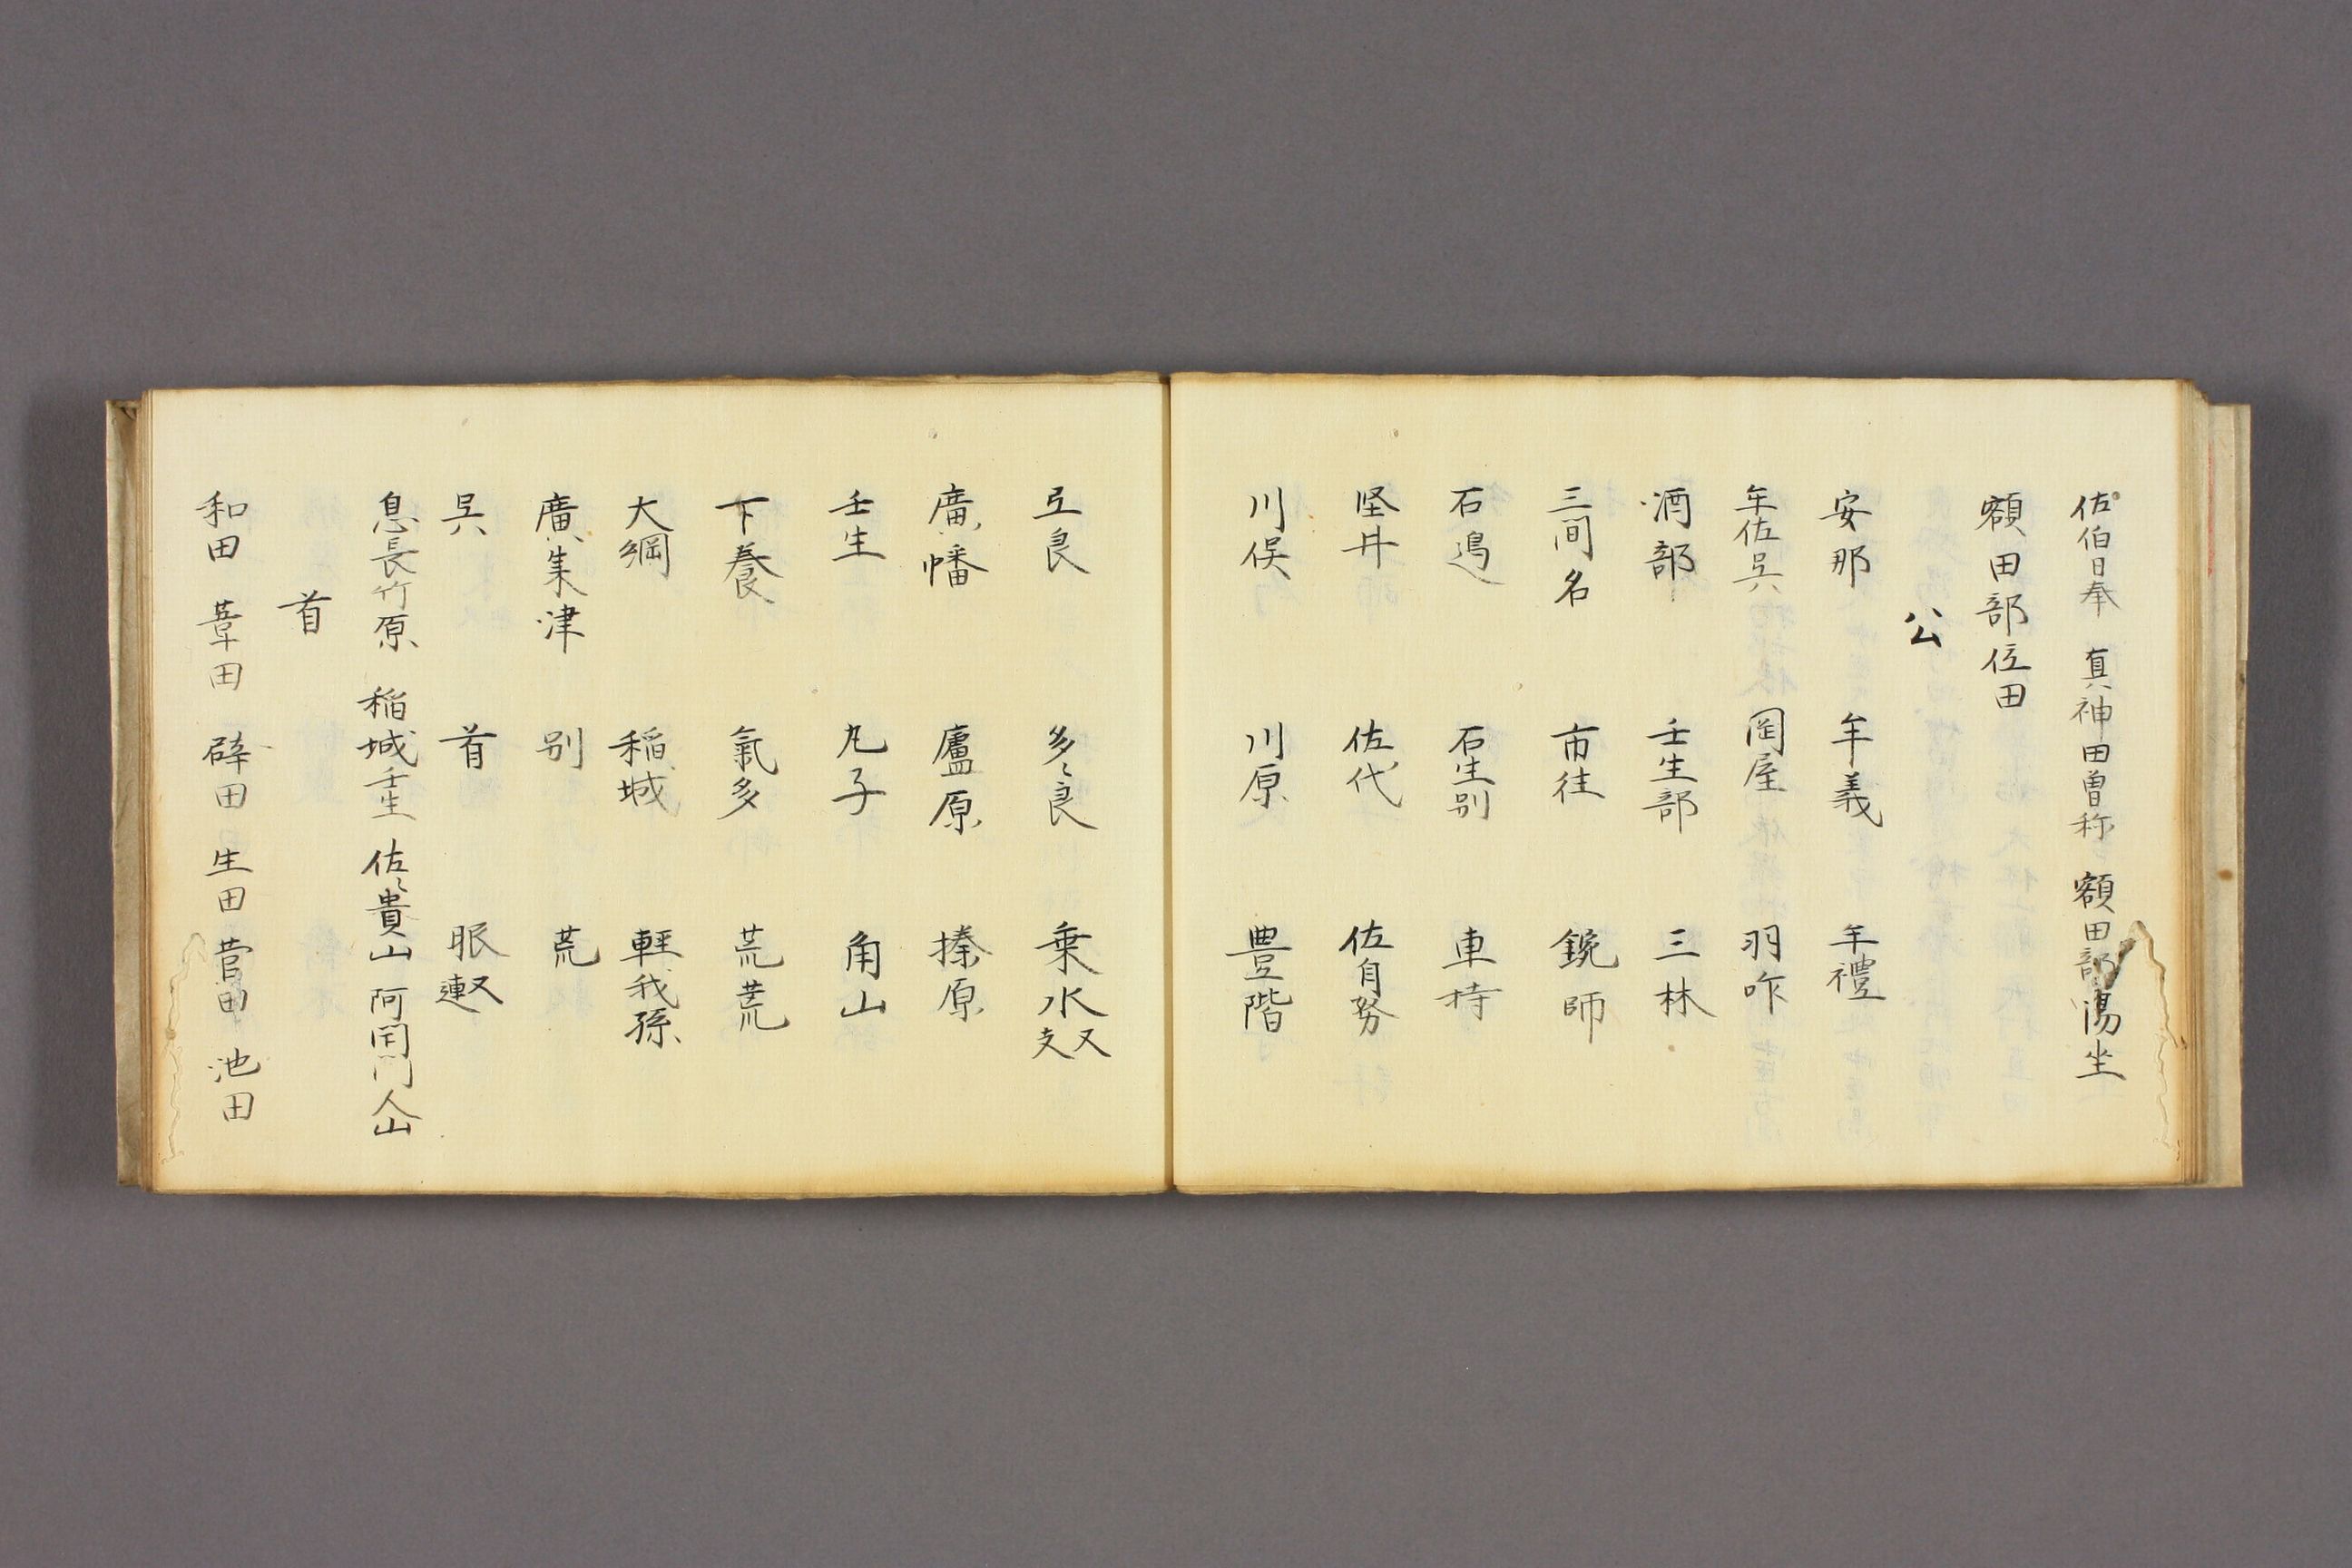 佐伯日奉 真神田曽称 額田部湯坐
額田部位田
公
安那 牟義 牟禮
牟佐呉 岡屋 羽咋
酒部 壬生部 三林
三間名 市往 鋺師
石邊 石生別 車持
坚井 佐代 佐自努
川俣 川原 豊階
工良 多々良 乗水又支
廣幡 廬原 榛原
壬生 丸子 角山
下養 氣多 荒荒
大綱 稲城 軽我孫
廣来津 別 荒
呉 首 眠又連
息長竹原 稲城壬生 佐々貴山 阿閇門人山
首
和田 葦田 辟田 生田 菅田 池田